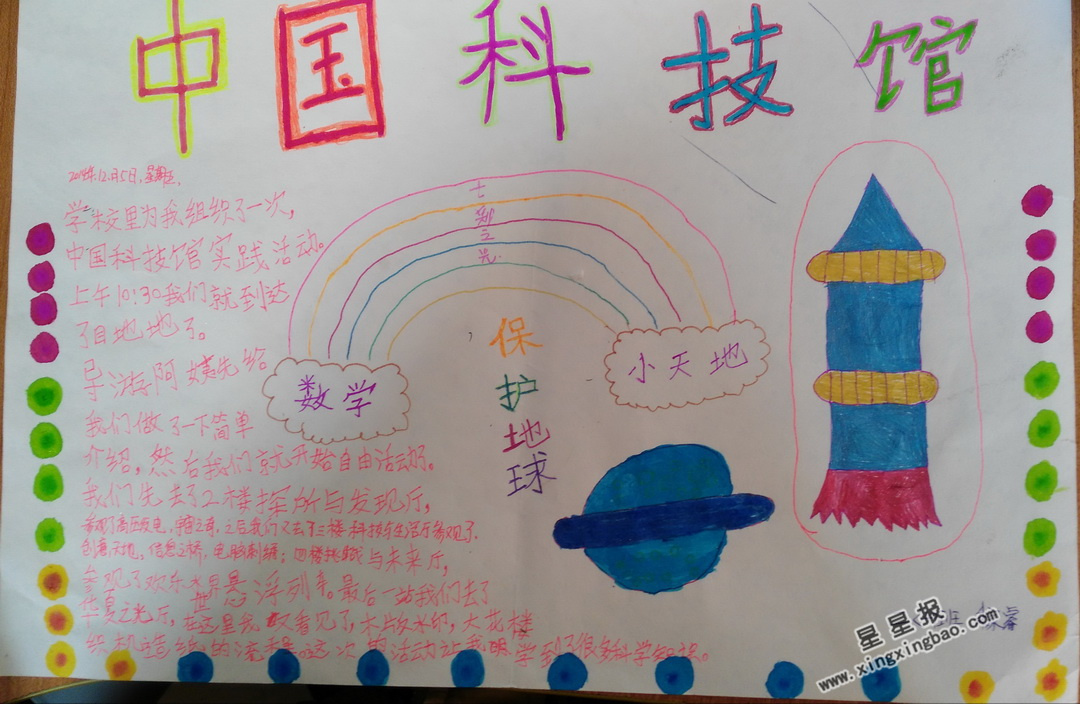 中国科技馆
2014年12月5日,星期五,
学校里为我组织了一次,
中国科技馆实践活动。
上午10:30我们就到达
了目地地了。
导游阿姨先给
我们做了一下简单
介绍,然后我们就开始自由活动了。
我们先去了二楼探所与发现厅,
之后我们又去了三楼科技与生活厅参观了
创意天地,信息之桥,电脑刺绣;四楼挑战与未来厅,
参观了欢乐水世界,悬浮列车。最后一站我们去了
华夏之光厅,在这里我又看见了,木版水印,大花楼
织机造纸的流程这次的活动让我学到了很多科学知识。
七彩之光
数学
小天地
保护地球
班
睿
星星报
www.xingxingbao.com